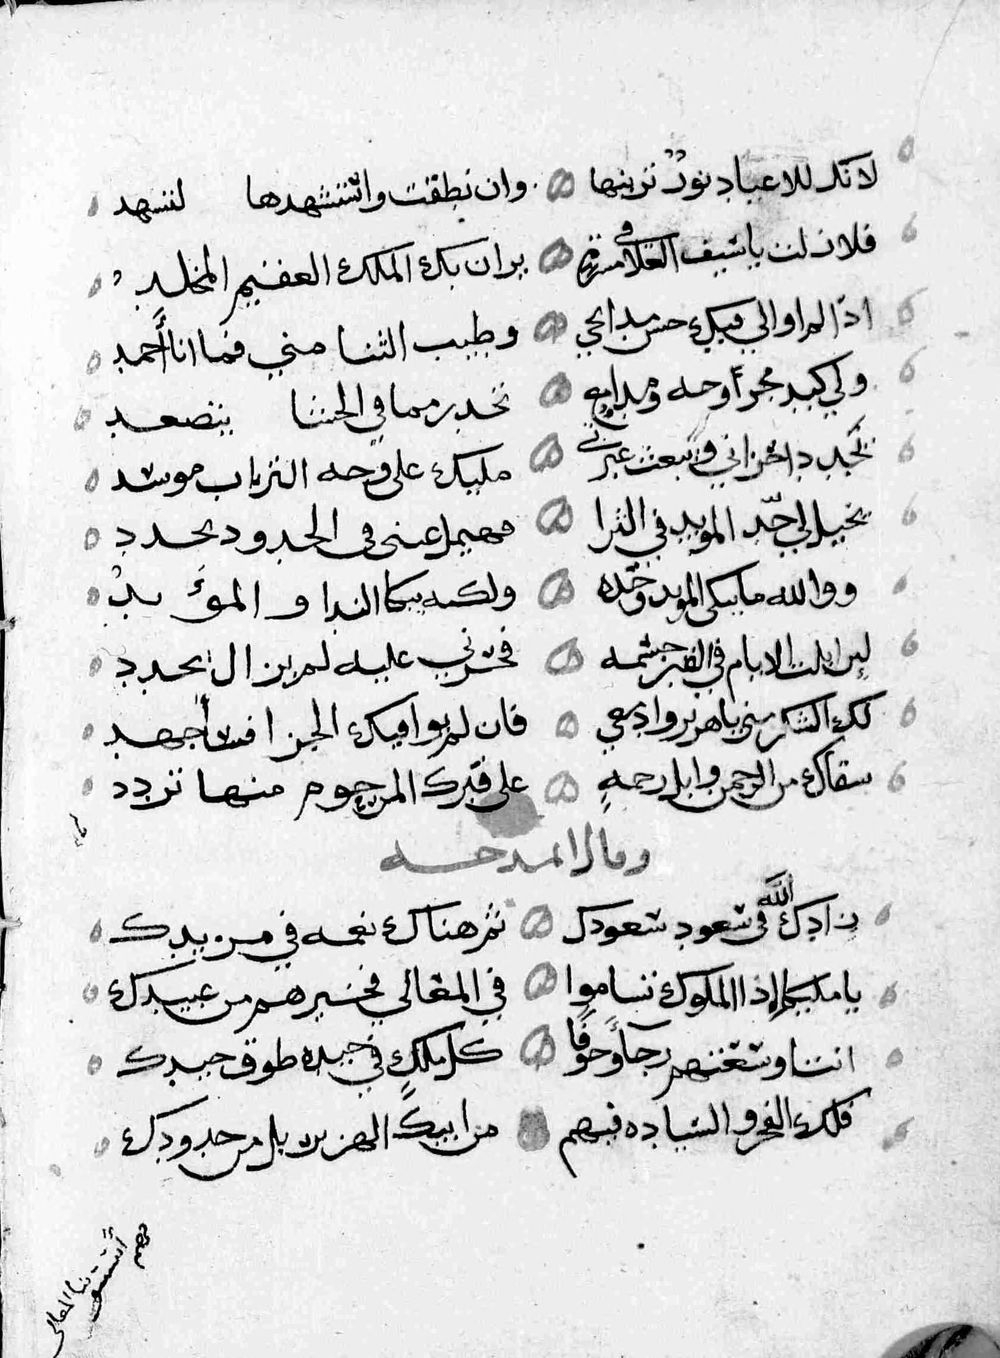 لانك للاعياد نور تزينها وان نطقت واستشهدها لتشهد
فلا زلت يا سيف العلا في مسرة يزان بك الملك العقيم المخلد
اذا لم اوالي فيك حسن مدايحي وطيب الثنا مني فما انا أحمد
ولي كبد تحدر مما في الحشا يتصعد
تجدد احزاني وتبعث عبرتي مليك على وجه التراب موسد
يخيل لي خد المويد في الثرا عنى في الخدود يخدد
ووالله ما يبكي المويد وحده ولكنه يبكا الندا والمؤيد
لين ابلت الايام في القبر جسمه فحزني عليه لم يزل يجدد
لك الشكر مني فان لم يوافيك الجزا فسأجهد
سقاك من الرحمن وابل رحمة على قبرك المرحوم منها تردد
وقال ايمدحه
زادك الله في سعود سعودك ثم هناك نعمه في مزيدك
يا مليكا اذا الملوك تساموا في المعالي فخيرهم من عبيدك
انت اوسعتهم رجاً وخوفا كل ملك في جيده طوق جيدك
فلك الفخر والسياده فيهم من ابيك الهزبر بل من جدودك